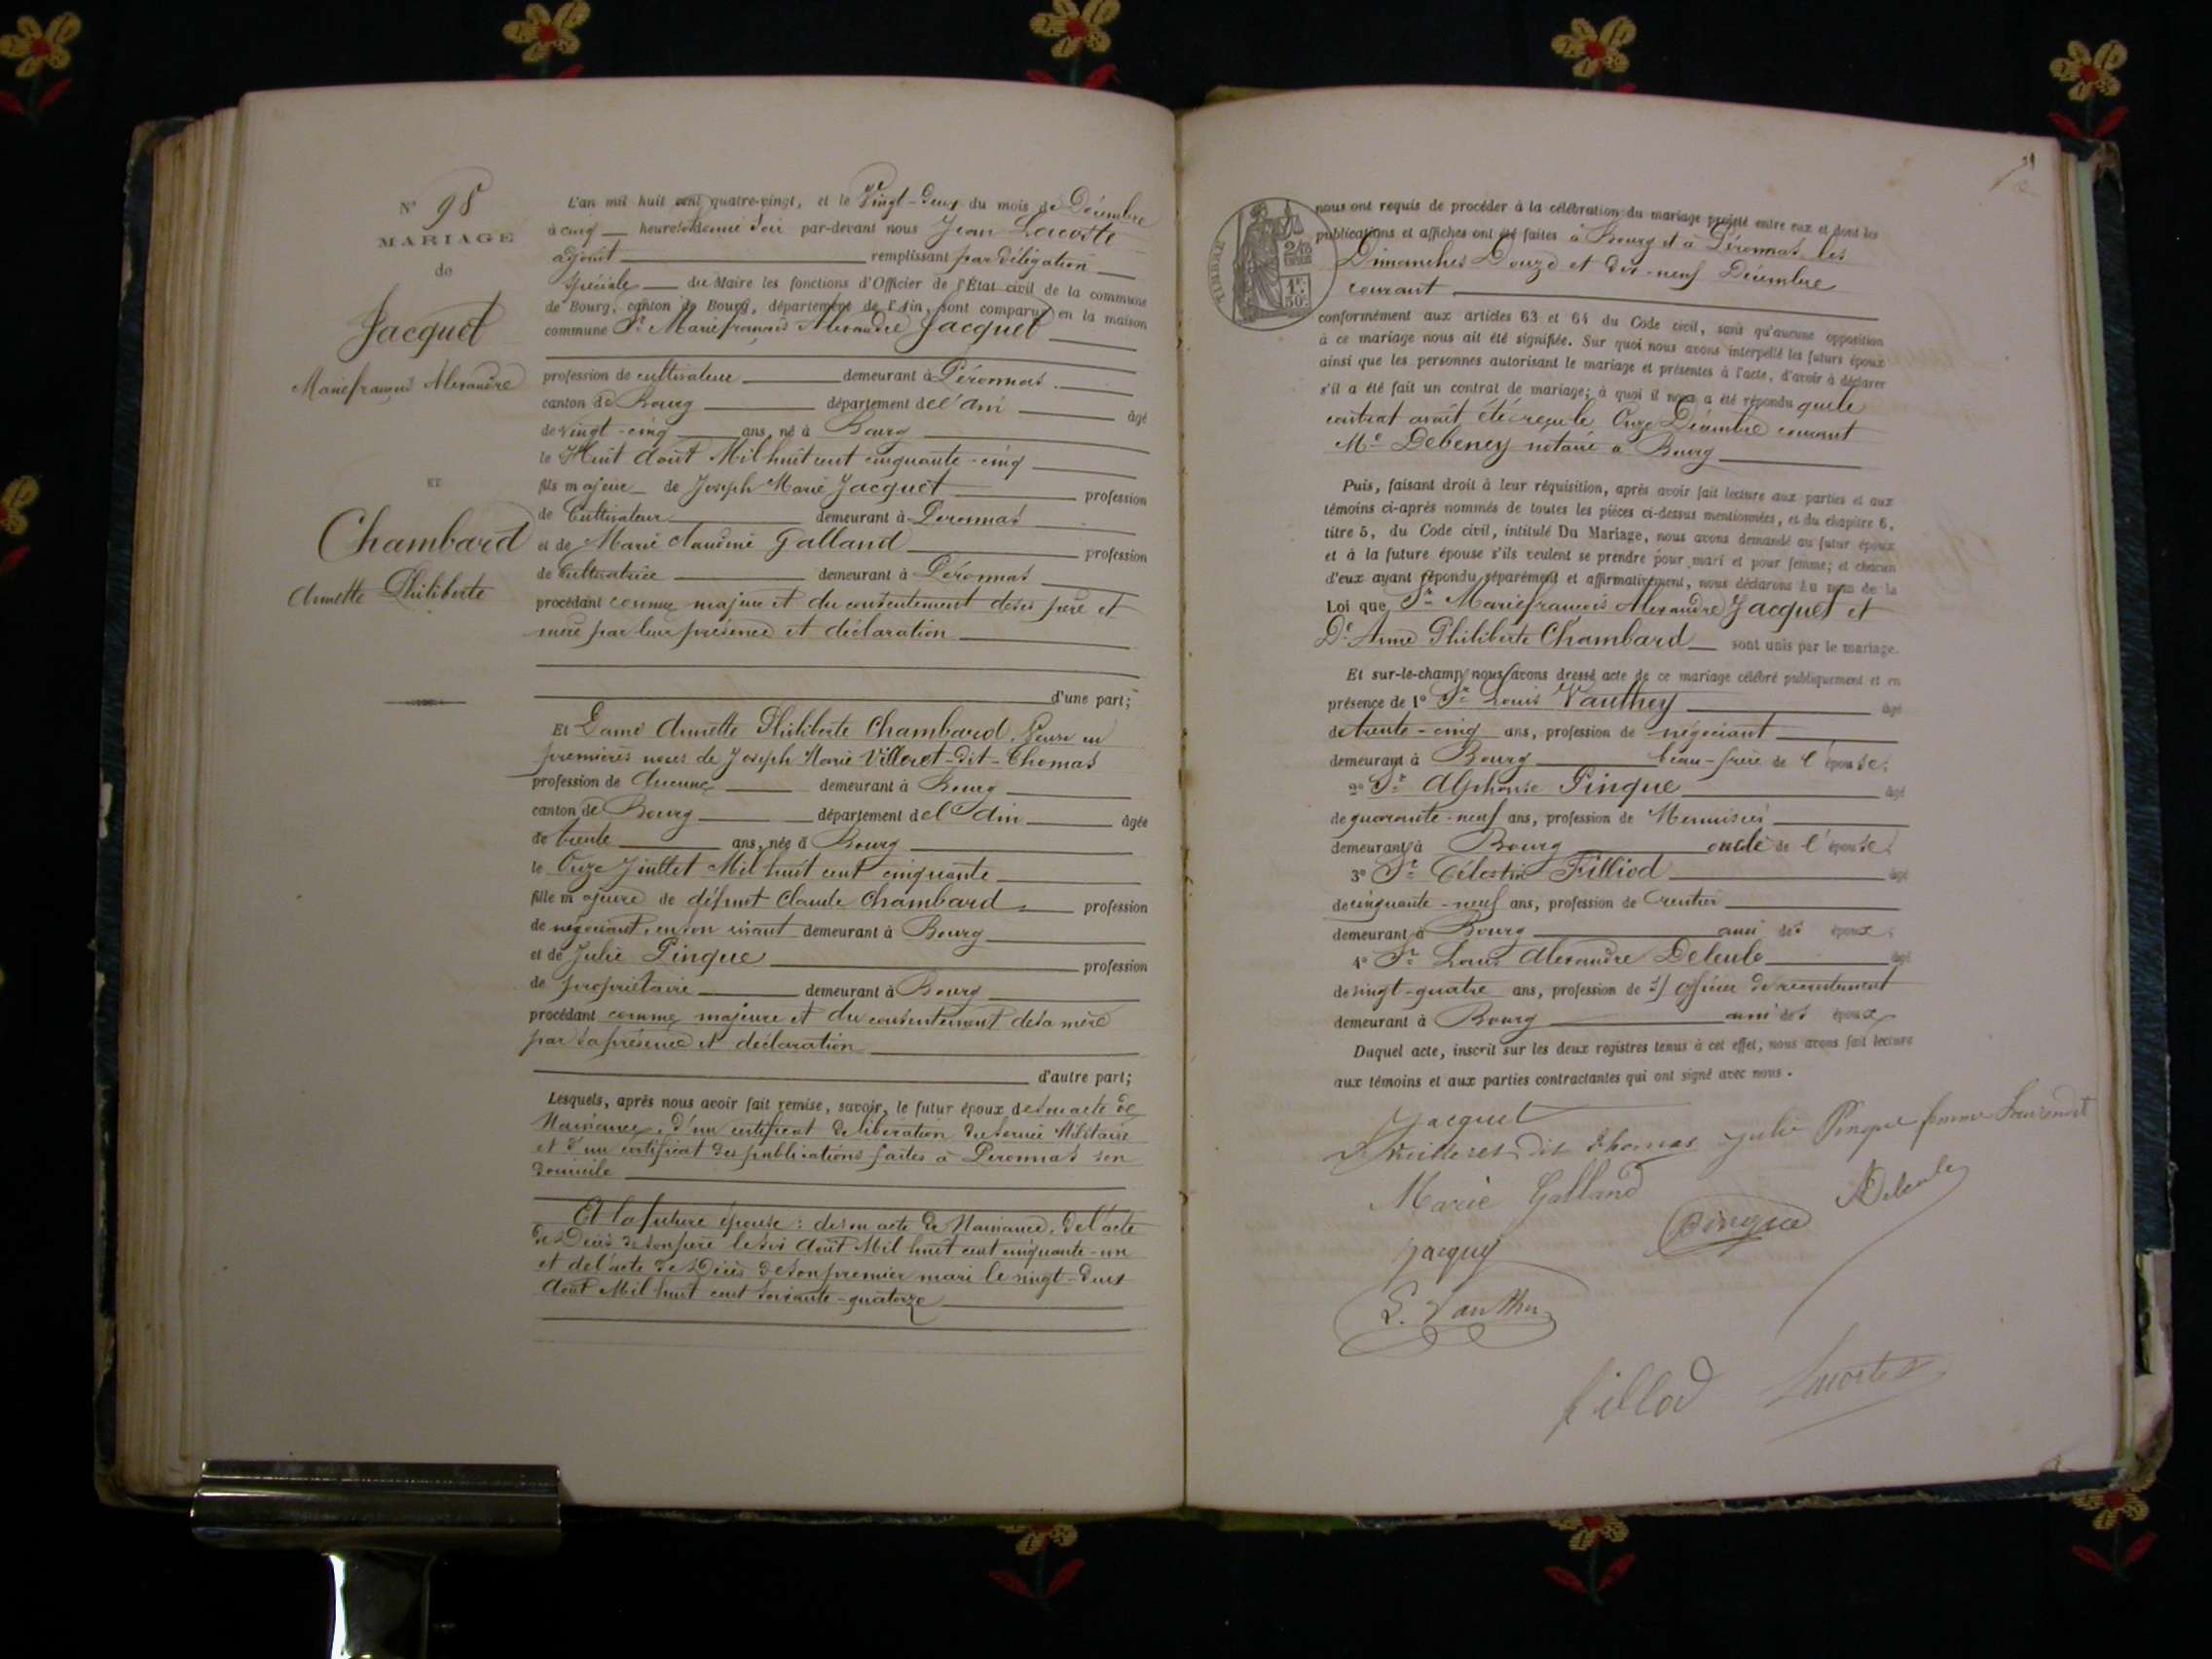 N° 98
MARIAGE
de
Jacquet
Marie françois Alexandre
ET
Chambard
Annette Philiberte
L'an mil huit cent quatre-vingt, et le Vingt-deux du mois de Décembre
à cinq heures & demie Soir par-devant nous Jean Lacoste
adjoint remplissant par délégation
spéciale du Maire les fonctions d'Officier de l'État civil de la commune
de Bourg, canton de Bourg, département de l'Ain, sont comparus en la maison
commune Sr Marie françois Alexandre Jacquet
profession de cultivateur demeurant à Péronnas
canton de Bourg département de l'Ain âgé
de vingt-cinq ans, né à Bourg
le Huit Août Mil huit cent cinquante-cinq
fils majeur de Joseph Marie Jacquet profession
de Cultivateur demeurant à Péronnas
et de Marie Claudine Galland profession
de Cultivatrice demeurant à Péronnas
procédant comme majeur et du consentement de ses père et
mère par leur présence et déclaration
d'une part;
Et Dame Annette Philiberte Chambard, Veuve en
premières noces de Joseph Marie Villeret-dit-Thomas
profession de Aucune demeurant à Bourg
canton de Bourg département de l'Ain âgée
de trente ans, née à Bourg
le Onze Juillet Mil huit cent cinquante
fille majeure de défunt Claude Chambard profession
de négociant, en son vivant demeurant à Bourg
et de Julie Pinque profession
de propriétaire demeurant à Bourg
procédant comme majeure et du consentement de sa mère
par sa présence et déclaration
d'autre part;
Lesquels, après nous avoir fait remise, savoir, le futur époux de son acte de
Naissance, d'un certificat de libération du service Militaire
et d'un certificat des publications faites à Péronnas son
domicile
Et la future épouse : de son acte de Naissance, de l'acte
de Décès de son père le six Août Mil huit cent cinquante-un
et de l'acte de Décès de son premier mari le vingt-deux
Août Mil huit cent soixante-quatorze
TIMBRE
2/10
EN SUS
1F.
50C.
nous ont requis de procéder à la célébration du mariage projeté entre eux et dont les
publications et affiches ont été faites à Bourg et à Péronnas les
Dimanches Douze et dix-neuf Décembre
courant
conformément aux articles 63 et 64 du Code civil, sans qu'aucune opposition
à ce mariage nous ait été signifiée. Sur quoi nous avons interpellé les futurs époux
ainsi que les personnes autorisant le mariage et présentes à l'acte, d'avoir à déclarer
s'il a été fait un contrat de mariage; à quoi il nous a été répondu que le
contrat avait été reçu le Onze Décembre courant
Me Debeney notaire à Bourg
Puis, faisant droit à leur réquisition, après avoir fait lecture aux parties et aux
témoins ci-après nommés de toutes les pièces ci-dessus mentionnées, et du chapitre 6,
titre 5, du Code civil, intitulé Du Mariage, nous avons demandé au futur époux
et à la future épouse s'ils veulent se prendre pour mari et pour femme; et chacun
d'eux ayant répondu séparément et affirmativement, nous déclarons au nom de la
Loi que Sr Marie françois Alexandre Jacquet et
De Anne Philiberte Chambard sont unis par le mariage.
Et sur-le-champ nous avons dressé acte de ce mariage célébré publiquement et en
présence de 1° Sr Louis Vauthey âgé
de trente-cinq ans, profession de négociant
demeurant à Bourg beau-frère de l'épouse;
2° Sr Alphonse Pinque âgé
de quarante-neuf ans, profession de Menuisier
demeurant à Bourg oncle de l'épouse;
3° Sr Célestin Filliod âgé
de cinquante-neuf ans, profession de rentier
demeurant à Bourg ami des époux;
4° Sr Louis Alexandre Deleule âgé
de vingt-quatre ans, profession de s/ officier de recrutement
demeurant à Bourg ami des époux
Duquel acte, inscrit sur les deux registres tenus à cet effet, nous avons fait lecture
aux témoins et aux parties contractantes qui ont signé avec nous.
Jacquet
Villeret dit thomas Julie Pinque femme
Marie Galland
ADeleule
Pinque
Jacquet
L. Vauthey
fillod Lacoste